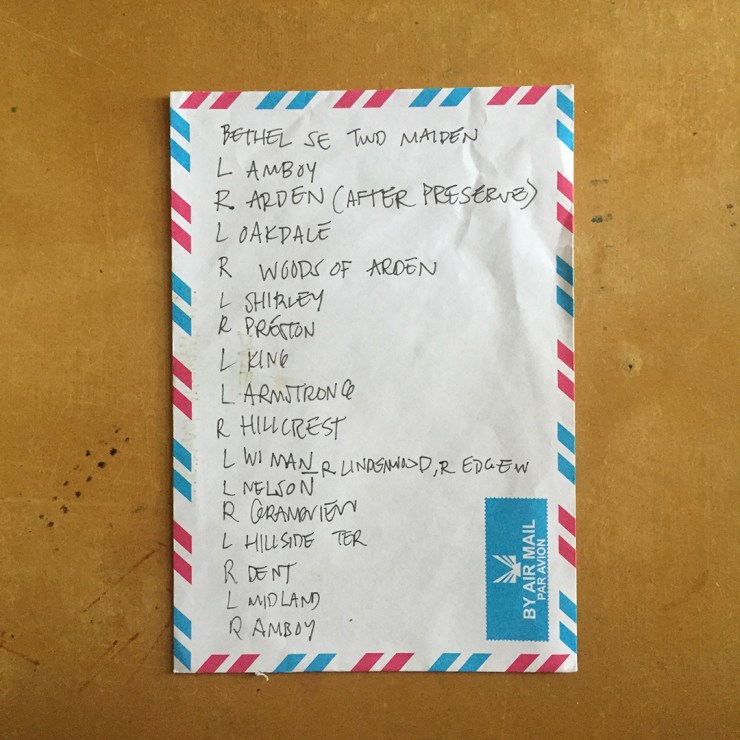 BETHEL SE TWO MAIDEN
L AMBOY
R. ARDEN (AFTER PRESERVE)
L OAKDALE
R WOODS OF ARDEN
L SHIRLEY
R PRESTON
L KING
L ARMSTRONG
R HILLCREST
L WIMAN R LINDENWOOD, R EDGEW
L NELSON
R GRANDVIEW
L HILLSIDE TER
R DENT
L MIDLAND
R AMBOY
BY AIR MAIL
PAR AVION